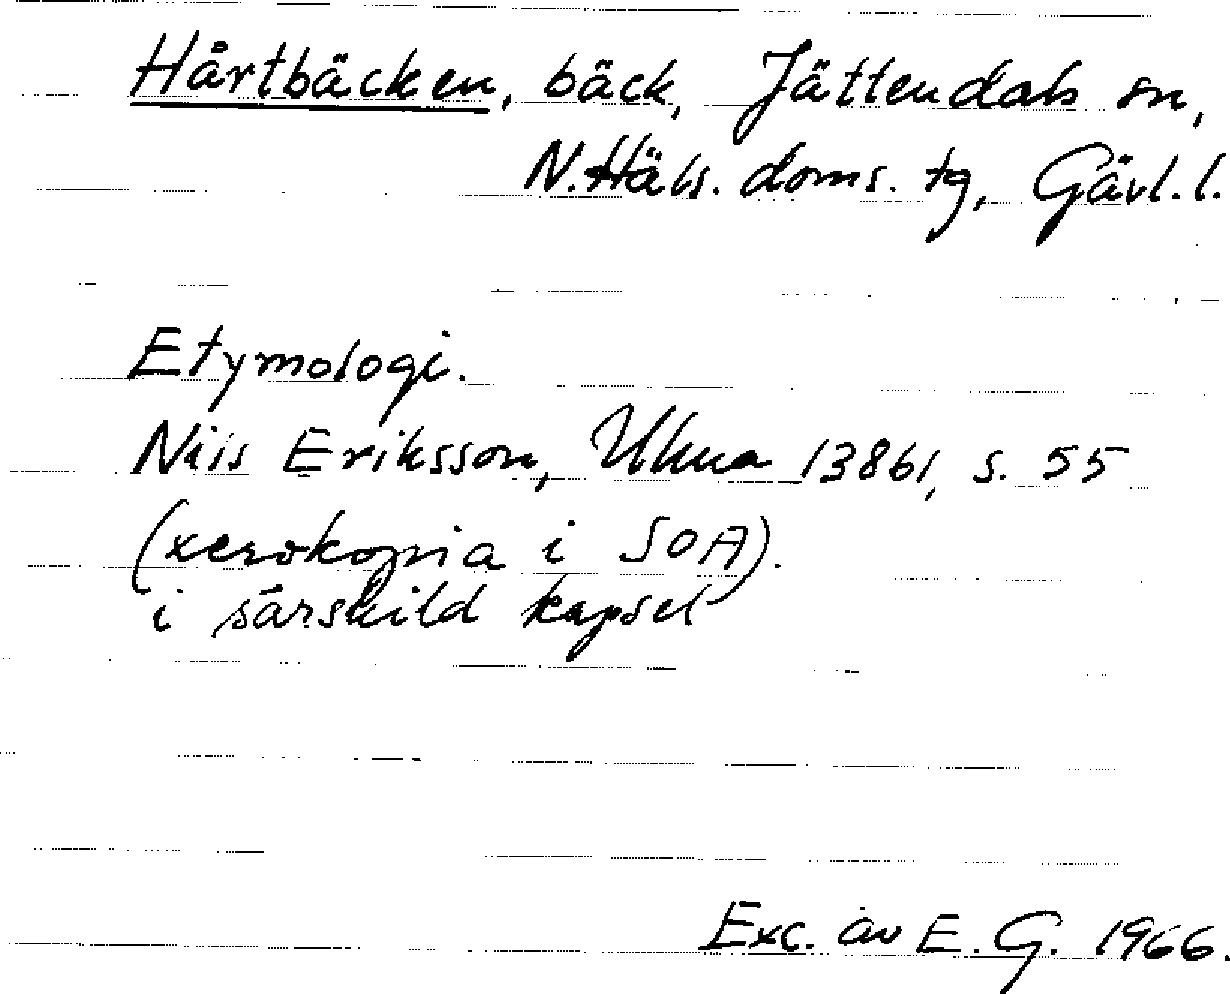 Hårtbäcken, bäck, Jättendals sn,
N. Häls. doms. tg, Gävl. l.
Etymologi.
Nils Eriksson, Ulma 13861, s. 55
(xerokopia i SOA).
i särskild kapsel
Exc. av E. G. 1966.